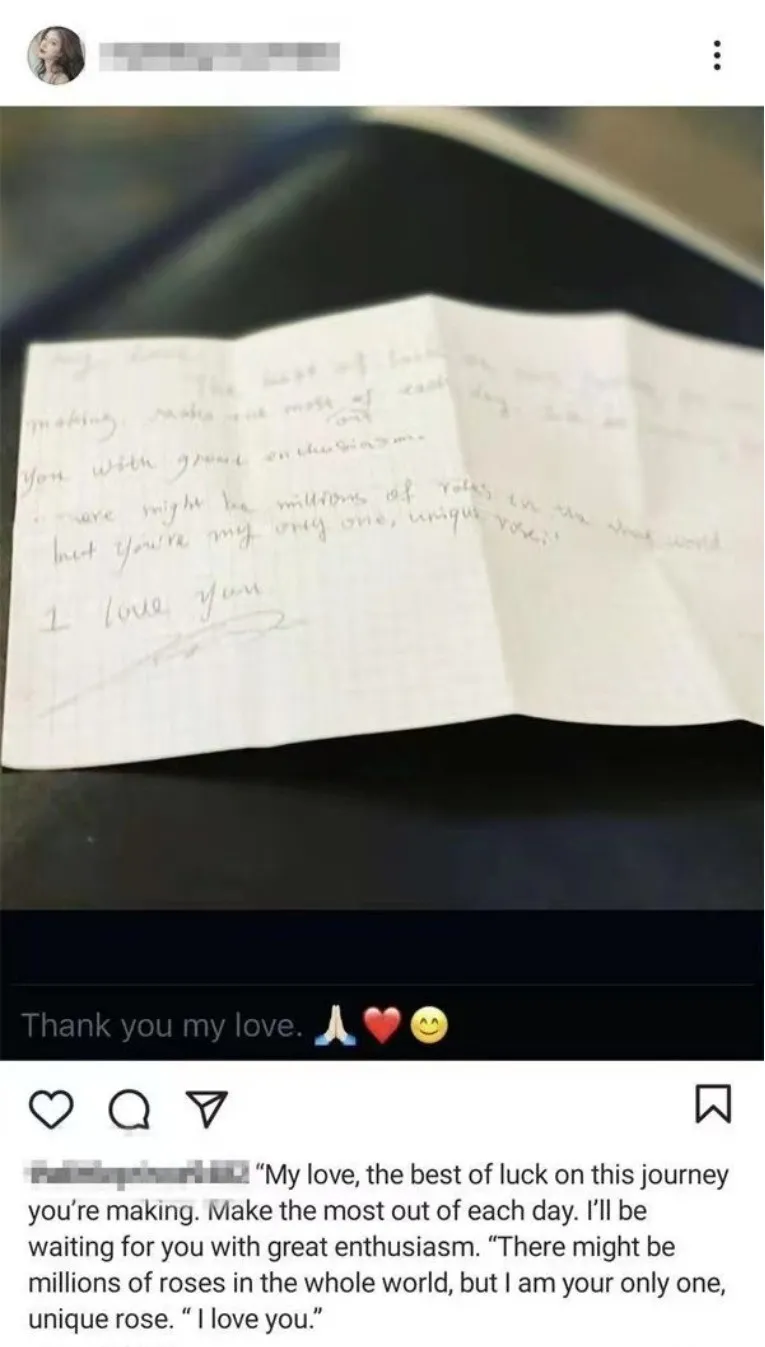 The best of luck
making. make the most of each day.
out
you with great enthusiasm.
might be millions of roses in the whole world
but you're my only one, unique rose."
I love you
Thank you my love. 🙏🏻❤️😊
"My love, the best of luck on this journey
you're making. Make the most out of each day. I'll be
waiting for you with great enthusiasm. "There might be
millions of roses in the whole world, but I am your only one,
unique rose. " I love you."